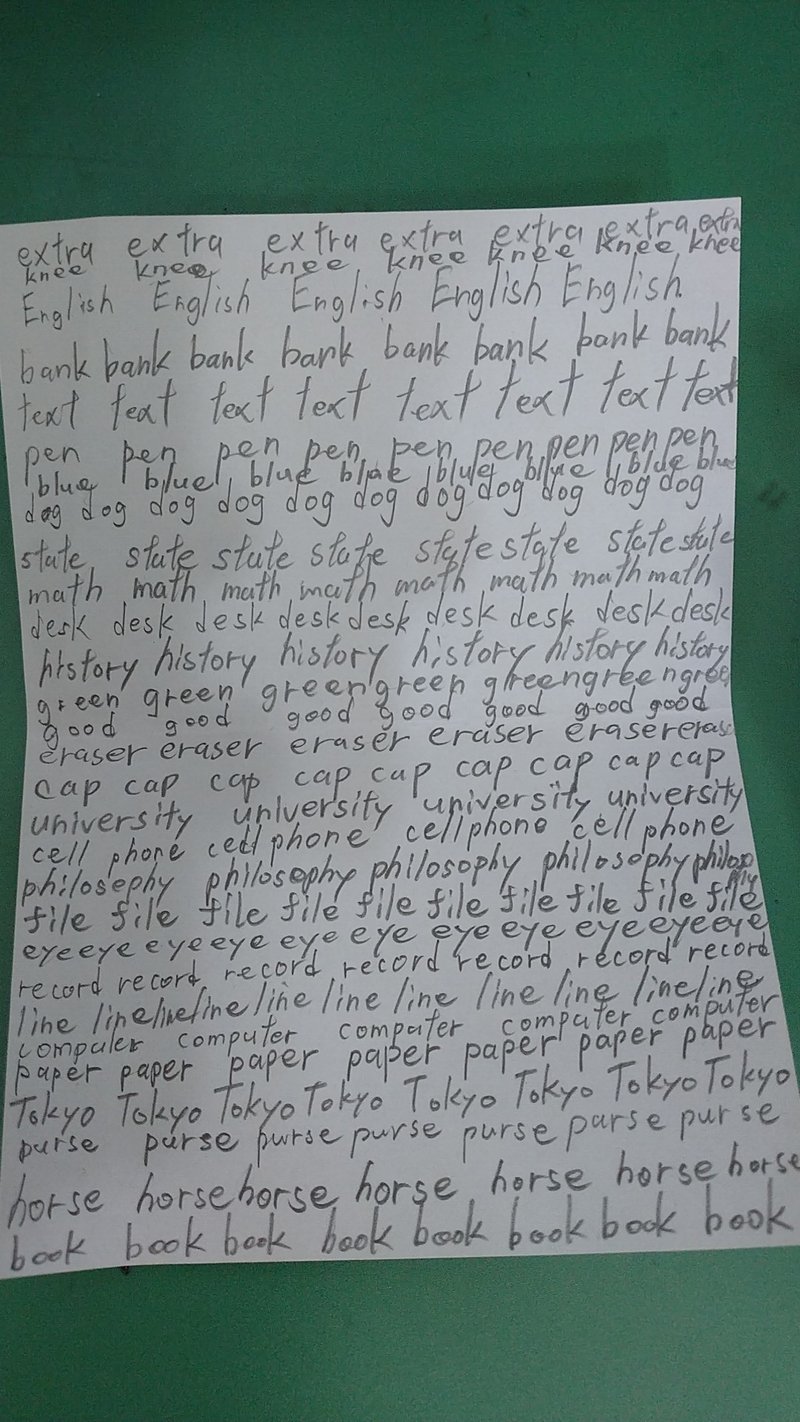 extra extra extra extra extra extra extra
knee knee knee knee knee knee knee
English English English English English
bank bank bank bank bank bank bank bank
text text text text text text text text
pen pen pen pen pen pen pen pen pen
blue blue blue blue blue blue blue blue
dog dog dog dog dog dog dog dog dog dog dog
state state state state state state state state
math math math math math math math math
desk desk desk desk desk desk desk desk desk
history history history history history history
green green green green green green gree
good good good good good good good
eraser eraser eraser eraser eraser eras
cap cap cap cap cap cap cap cap cap
university university university university
cell phone cell phone cell phone cell phone
philosephy philosophy philosophy philosophy philosophy
file file file file file file file file file
eye eye eye eye eye eye eye eye eye eye eye
record record record record record record record
line line line line line line line line line line line
computer computer computer computer computer
paper paper paper paper paper paper paper
Tokyo Tokyo Tokyo Tokyo Tokyo Tokyo Tokyo Tokyo
purse purse purse purse purse purse purse
horse horse horse horse horse horse horse
book book book book book book book book